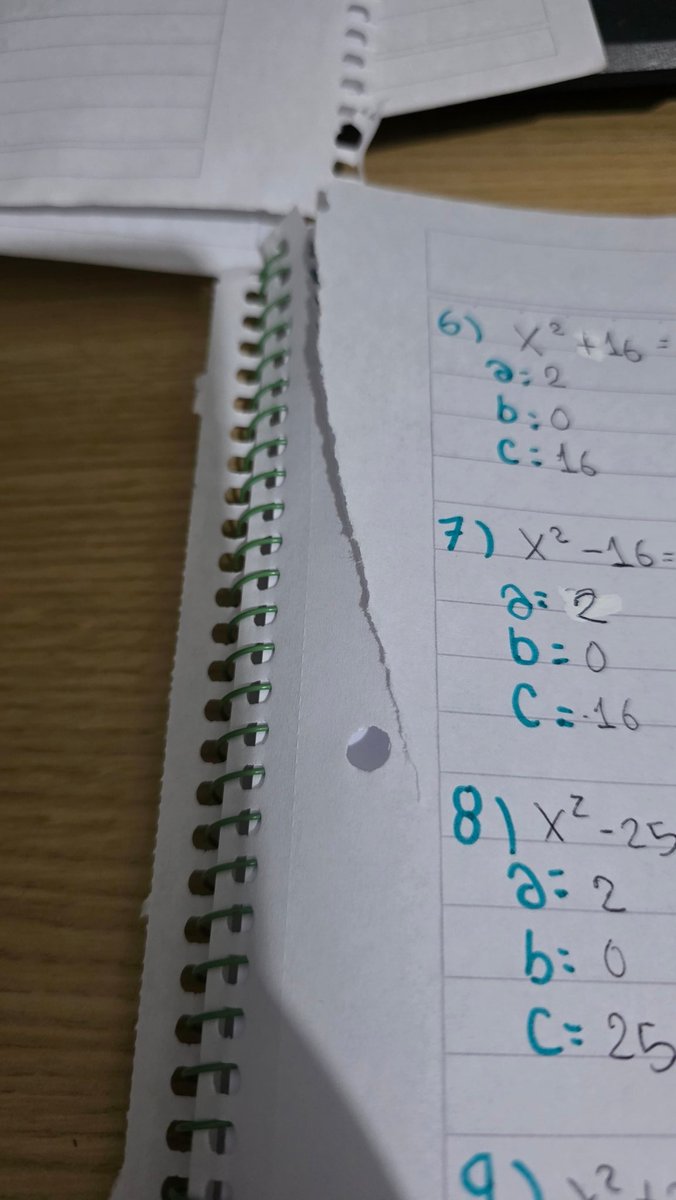 6) x² + 16 =
a = 2
b = 0
c = 16
7) x² - 16 =
a = 2
b = 0
c = -16
8) x² - 25
a = 2
b = 0
c = 25
9) x²